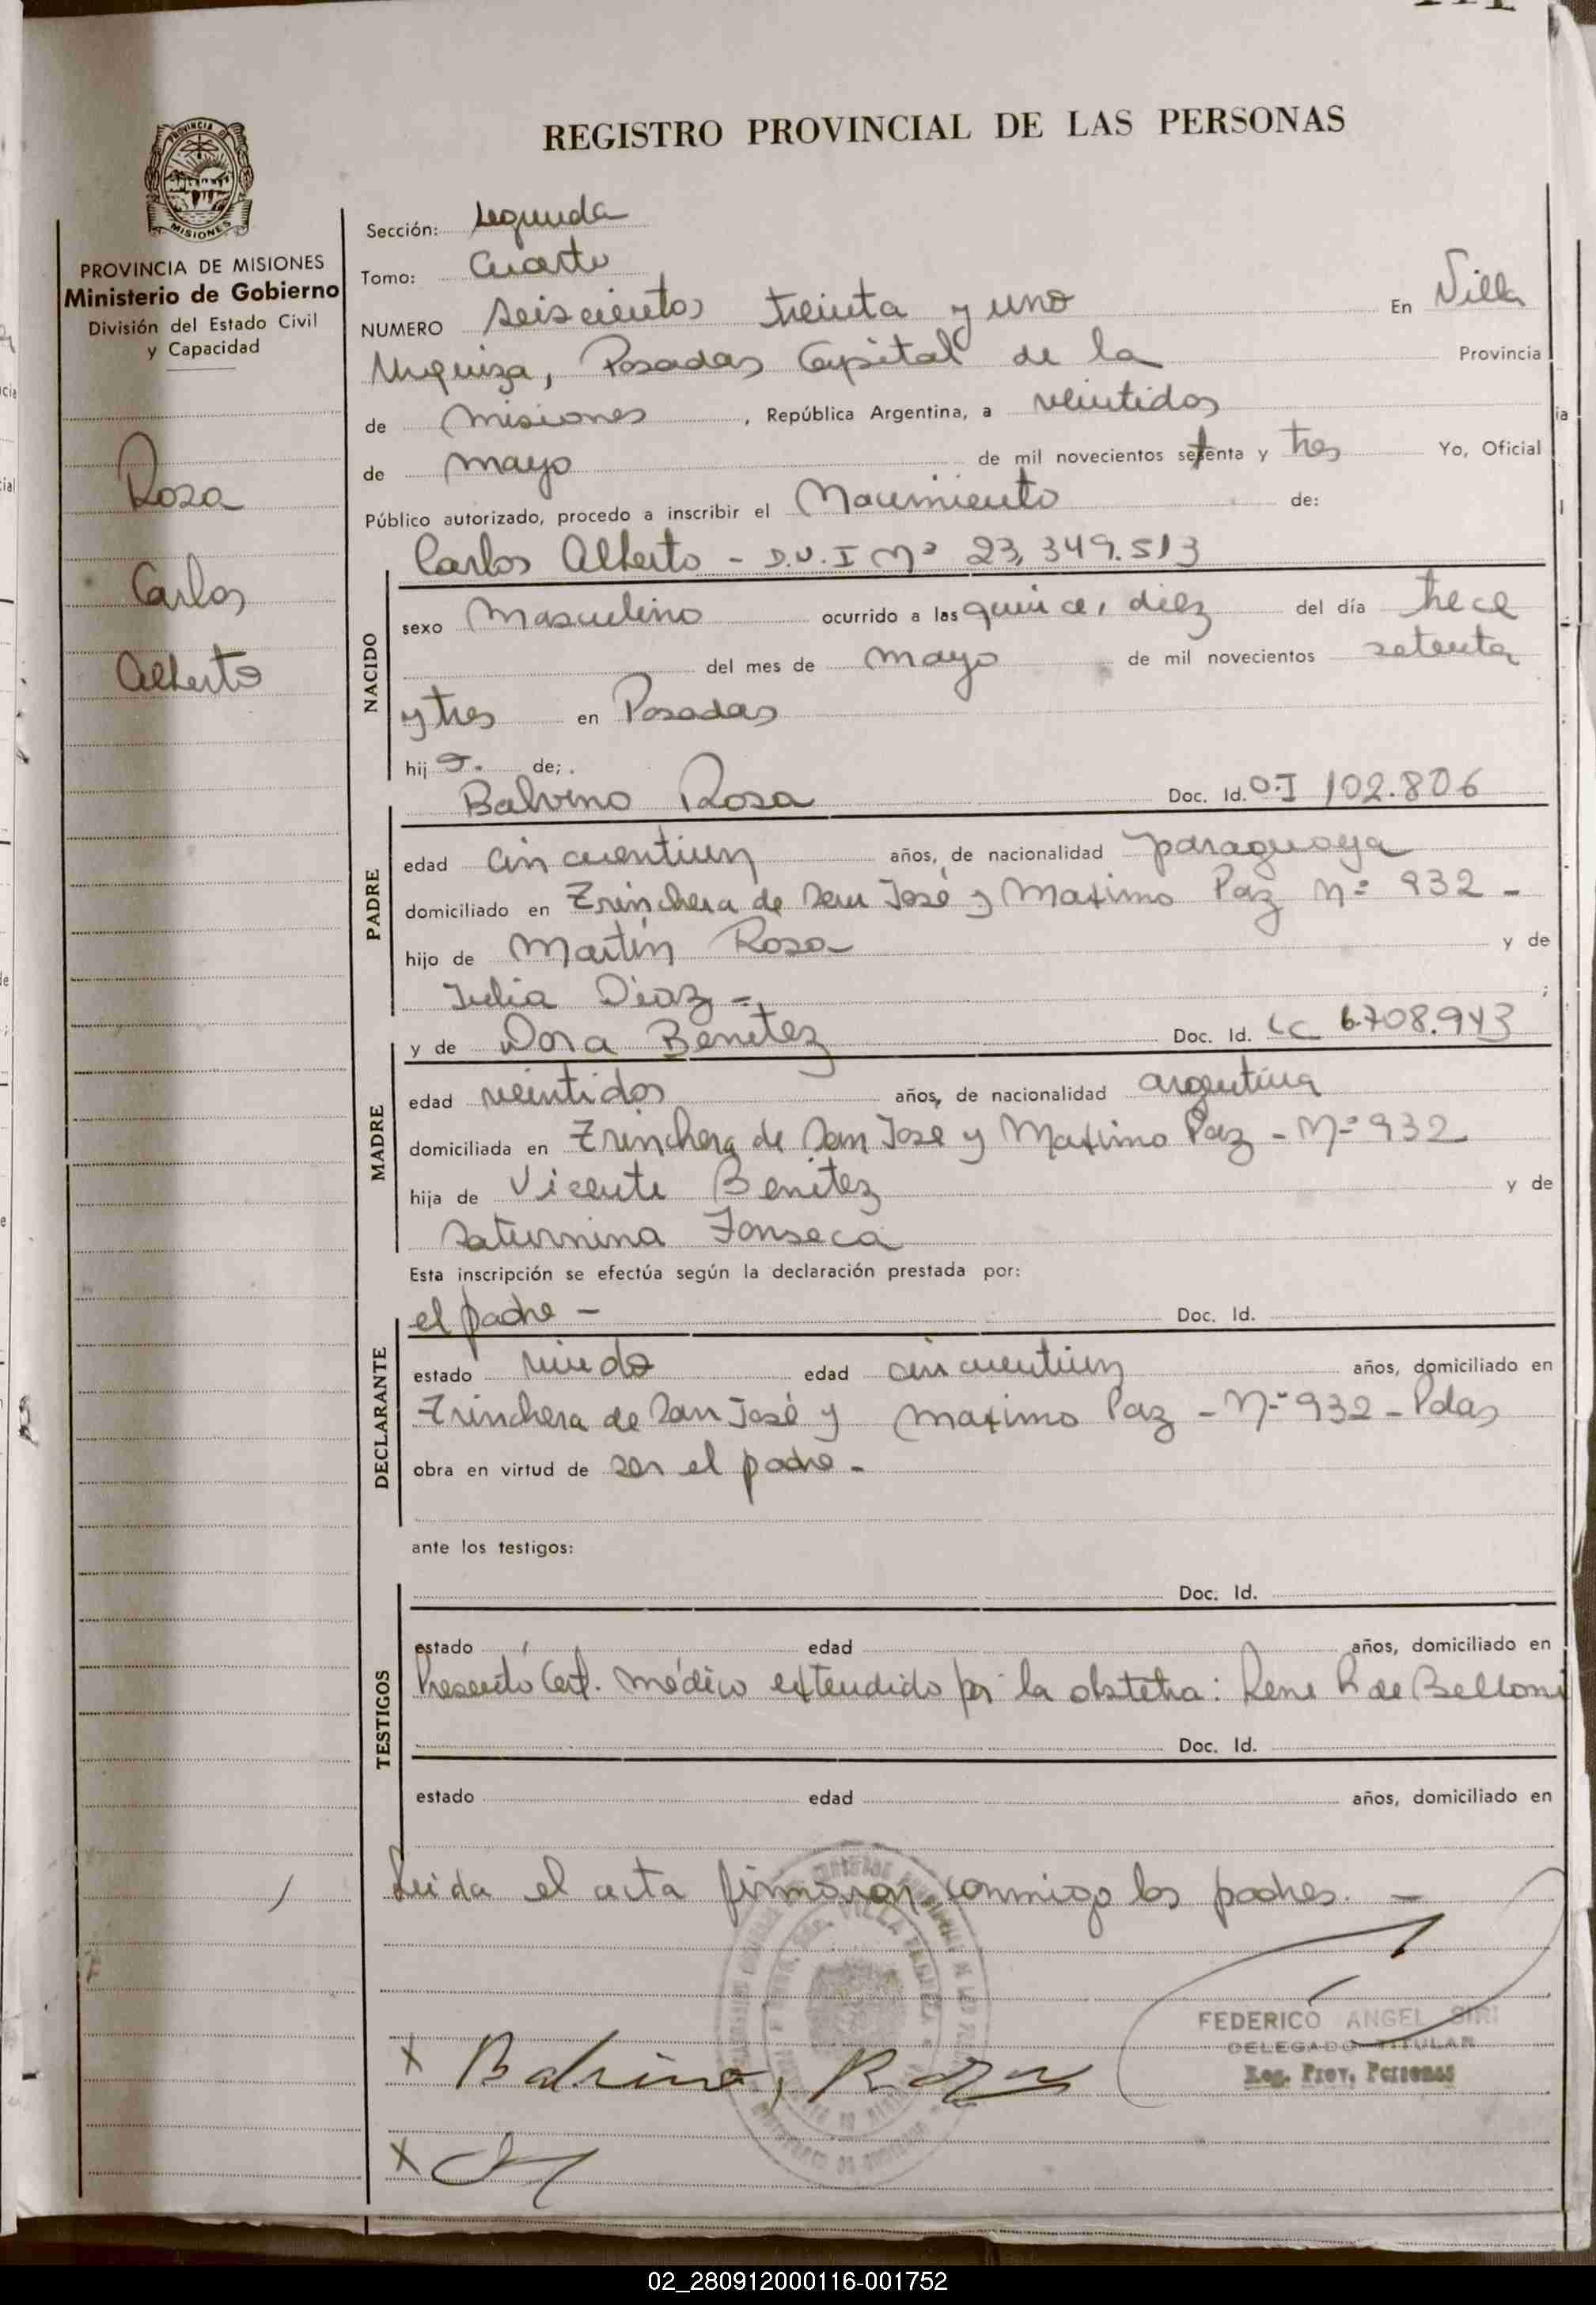 REGISTRO PROVINCIAL DE LAS PERSONAS
MISIONES
PROVINCIA DE MISIONES
Ministerio de Gobierno
División del Estado Civil
y Capacidad
Rosa
Carlos
Alberto
Sección: Segunda
Tomo: Cuarto
NUMERO seiscientos treinta y uno En Villa
Urquiza, Posadas Capital de la Provincia
de Misiones, República Argentina, a veintidos
de mayo de mil novecientos setenta y tres Yo, Oficial
Público autorizado, procedo a inscribir el Nacimiento de:
Carlos Alberto - D.U.I Nº 23,349.513
NACIDO
sexo Masculino ocurrido a las quince, diez del día trece
del mes de mayo de mil novecientos setenta
y tres en Posadas
hijo. de;.
Balvino Rosa Doc. Id. O.I 102.806
PADRE
edad cincuentiun años, de nacionalidad paraguaya
domiciliado en Trinchera de San José y Maximo Paz Nº 932 -
hijo de Martín Rosa y de
Julia Diaz - ;
y de Dora Benitez Doc. Id. LC 6.708.943
MADRE
edad veintidos años, de nacionalidad argentina
domiciliada en Trinchera de San Jose y Maximo Paz - Nº 932
hija de Vicente Benitez y de
Saturnina Fonseca
Esta inscripción se efectúa según la declaración prestada por:
el padre - Doc. Id.
DECLARANTE
estado viudo edad cincuentiun años, domiciliado en
Trinchera de San José y Maximo Paz - Nº 932 - Pdas
obra en virtud de ser el padre -
ante los testigos:
Doc. Id.
TESTIGOS
estado edad años, domiciliado en
Presentó Cert. médico extendido por la obstetra: Rene R de Belloni
Doc. Id.
estado edad años, domiciliado en
Leida el acta firmaron conmigo los padres. -
FEDERICO ANGEL SIRI
DELEGADO TITULAR
Reg. Prov. Personas
x Balvino, Rosa
x
02_280912000116-001752